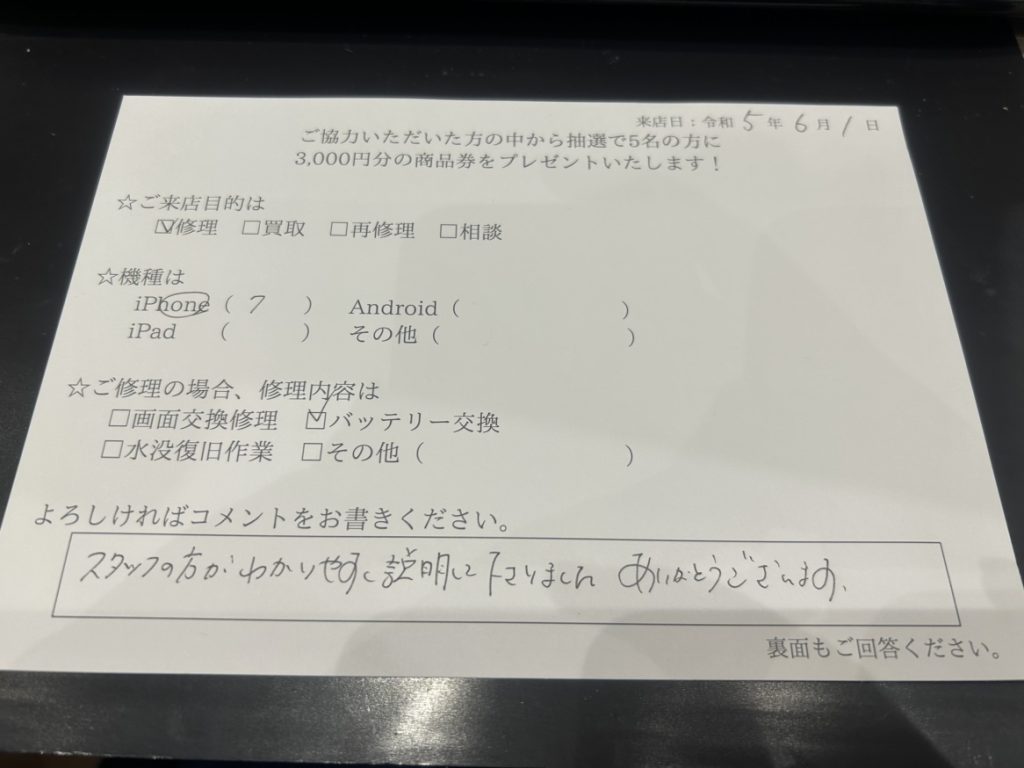 来店日：令和 5 年 6 月 1 日
ご協力いただいた方の中から抽選で5名の方に
3,000円分の商品券をプレゼントいたします！
☆ご来店目的は
☑修理 □買取 □再修理 □相談
☆機種は
iPhone（ 7 ） Android（ ）
iPad （ ） その他（ ）
☆ご修理の場合、修理内容は
□画面交換修理 ☑バッテリー交換
□水没復旧作業 □その他（ ）
よろしければコメントをお書きください。
スタッフの方がわかりやすく説明して下さりました ありがとうございます、
裏面もご回答ください。